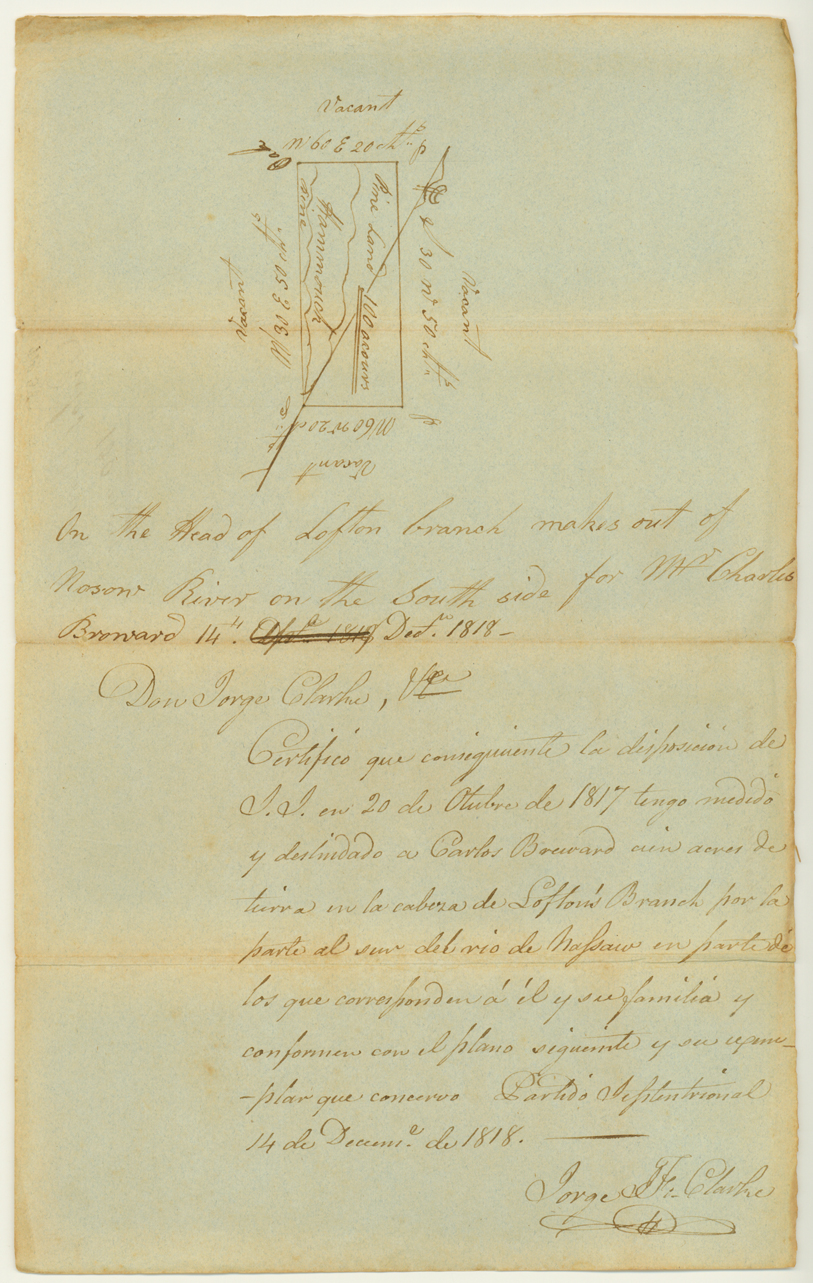 Vacant
N 60 E 20 ch.s
Pine
Hammonck
Pine Land
100 acours
N 30 E 50 ch.s
Vacant
S 30 W 50 ch.s
Vacant
N 60 W 20 ch
Vacant
On the Head of Lofton branch makes out of
Nosow River on the South side for Mr Charles
Broward 14th. Dec.r 1818 -
Don Jorge Clarke, &ca
Certifico que consiguiente la disposición de
S. I. en 20 de Otubre de 1817 tengo medido
y deslindado a Carlos Breward cien acres de
tierra en la cabeza de Lofton's Branch por la
parte al sur del rio de Nassaw en parte de
los que corresponden á él y su familia y
conformen con el plano siguiente y su exem-
-plar que concervo Partido Septentrional
14 de Decem.e de 1818.
Jorge J. F. Clarke